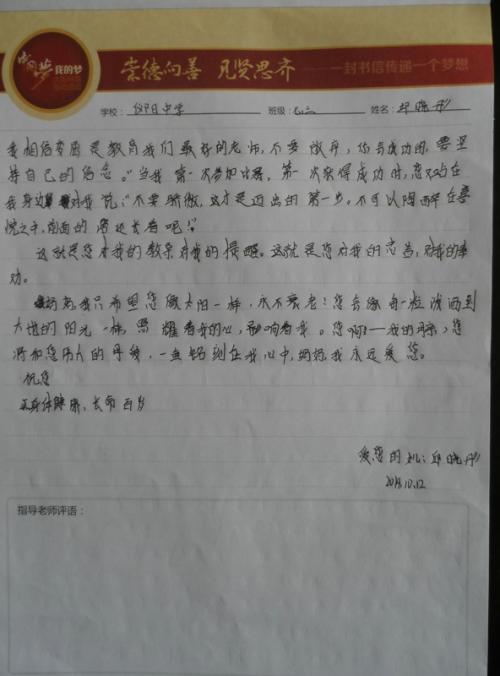 中国梦 我的梦
崇德向善 见贤思齐 一封书信传递一个梦想
学校： 中学 班级： 姓名：邱晓彤
我相信 是教育我们最好的老师，不要放弃，你会成功的，要坚
持自己的信念。”当我第一次参加比赛，第一次获得成功时，您又站在
我身边 对我说：“不要骄傲，这才是迈出的第一步。不可以陶醉在喜
悦之中，前面的路还长着呢！”
这就是您对我的教菜对我的提醒。这就是您对我的忠告，对我的
劝。
妈妈我只希望您像太阳一样，永不衰老！您会像每一粒洒到
大地的阳光一样，照耀着我的心，影响着我。您啊！—我的母亲，您
将和您伟大的母爱，一直铭刻在我心中，妈妈我永远爱您。
祝您
身体健康，长命百岁
爱您的 ：邱晓彤
2018.10.12
指导老师评语：